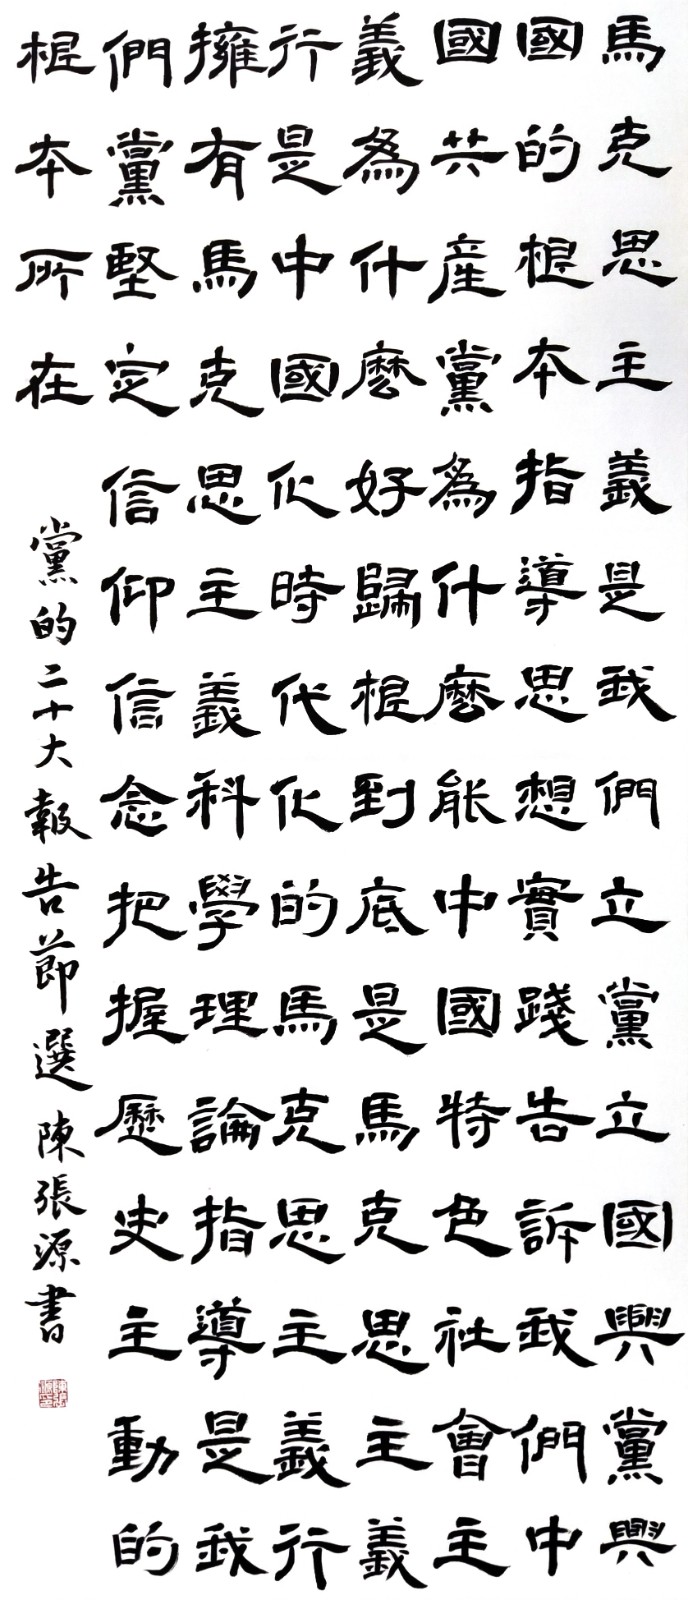 馬克思主義是我們立黨立國興黨興
國的根本指導思想實踐告訴我們中
國共產黨為什麼能中國特色社會主
義為什麼好歸根到底是馬克思主義
行是中國化時代化的馬克思主義行
擁有馬克思主義科學理論指導是我
們黨堅定信仰信念把握歷史主動的
根本所在
黨的二十大報告節選 陳張源書